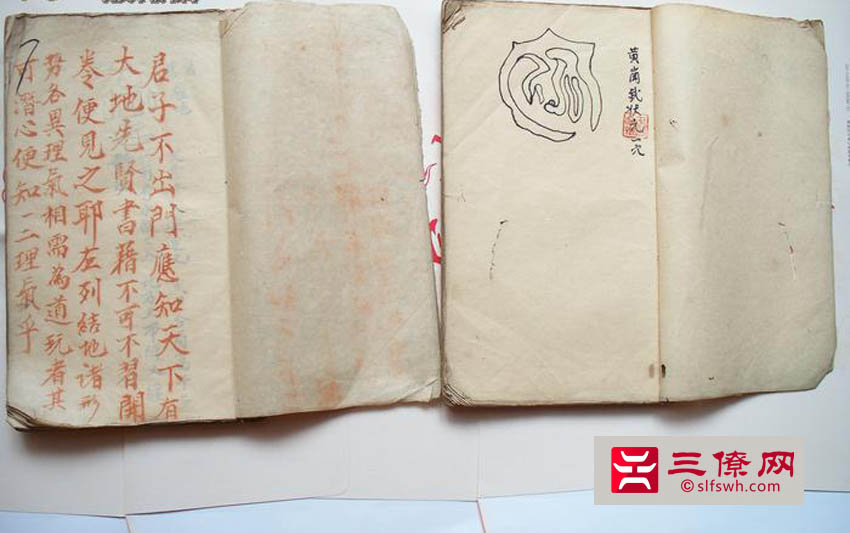 君子不出門應知天下有
大地先賢書籍不可不習開
卷便見之耶左列結地諸形
势各異理氣相需為道玩者其
可潛心便知一二理氣乎
黄崗武状元一穴
三僚网
slfswh.com